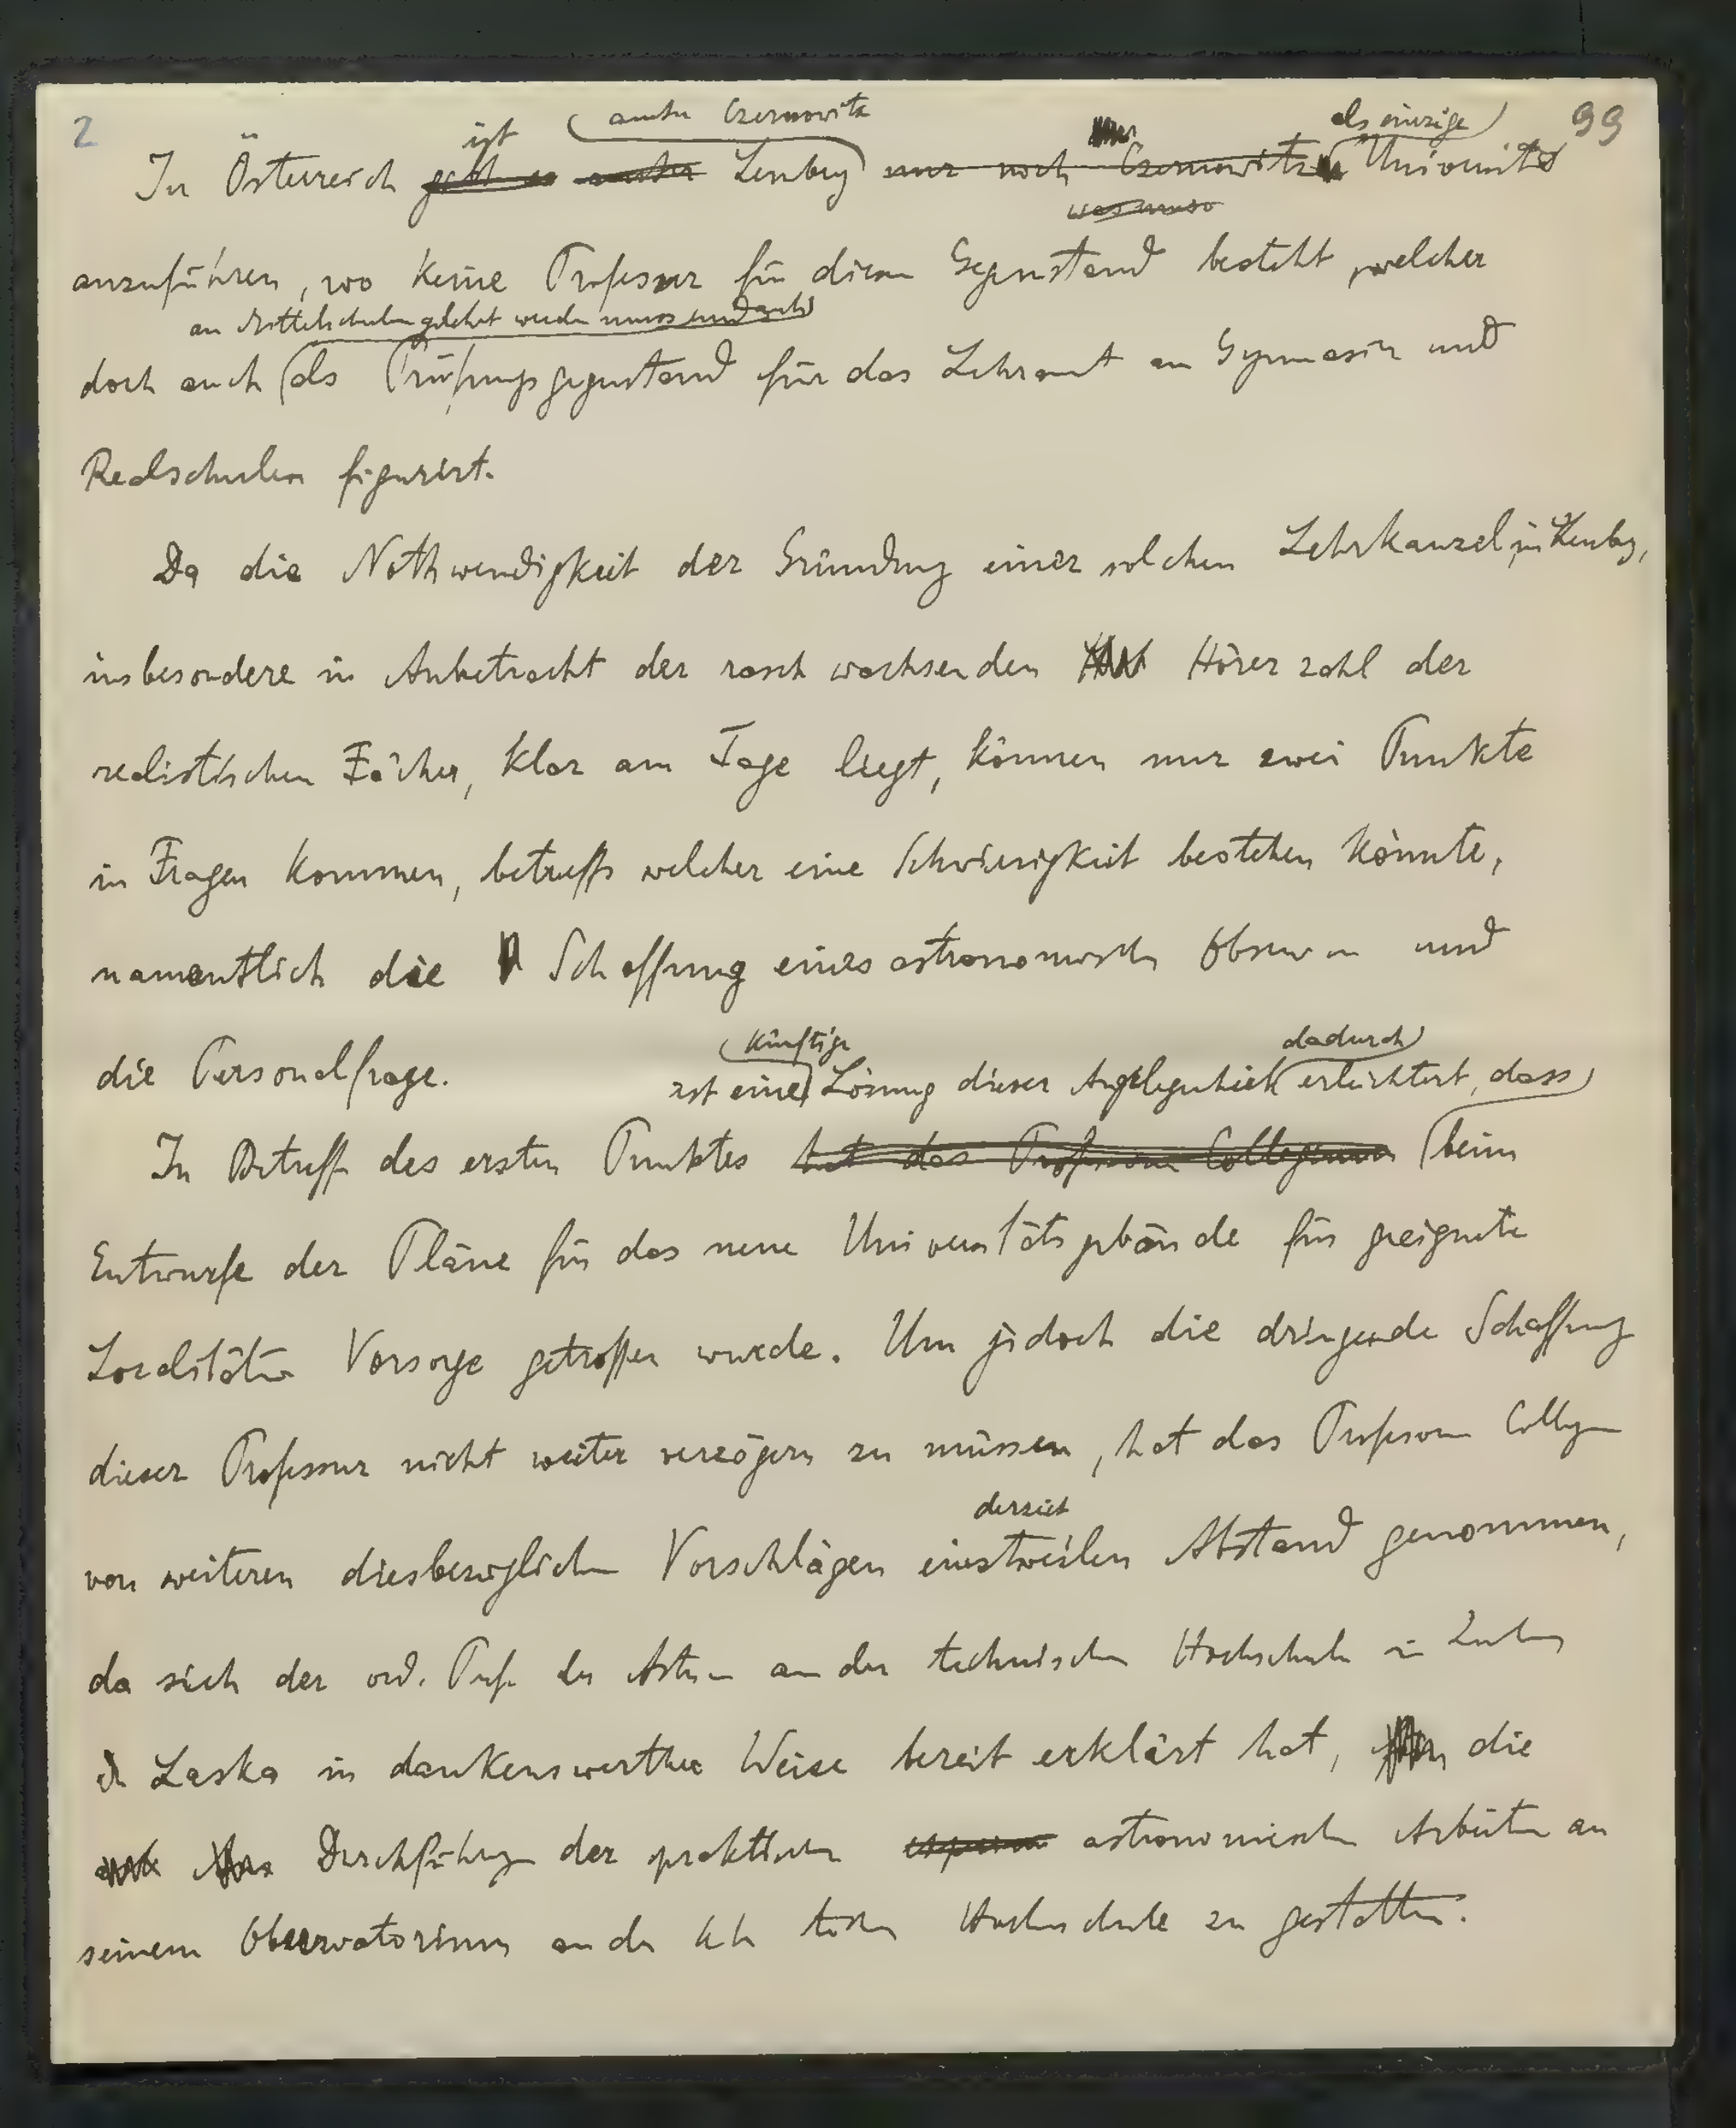 2
99
ist
ausser Czernowitz
als einzige
In Österreich gibt es ausser Lemberg nur noch Czernowitz Universität
anzuführen, wo keine Professur für diesen Gegenstand besteht, welcher
an Mittelschulen gelehrt werden muss und auch
doch auch als Prüfungsgegenstand für das Lehramt an Gymnasien und
Realschulen figurirt.
Da die Nothwendigkeit der Gründung einer solchen Lehrkanzel, in Lemberg,
insbesondere in Anbetracht der rasch wachsenden Hörerzahl der
realistischen Fächer, klar am Tage liegt, können nur zwei Punkte
in Fragen kommen, betreffs welcher eine Schwierigkeit bestehen könnte,
namentlich die Schaffung eines astronomisch Observ und
die Personalfrage.
künftige
dadurch
ist eine Lösung dieser Angelegenheit erleichtert, dass
In Betreff des ersten Punktes hat das Professoren Collegium beim
Entwurfe der Pläne für das neue Universitätsgebäude für geeignete
Localitäten Vorsorge getroffen wurde. Um jedoch die dringende Schaffung
dieser Professur nicht weiter verzögern zu müssen, hat das Professoren Colleg
derzeit
von weiteren diesbezüglichen Vorschlägen einstweilen Abstand genommen,
da sich der ord. Prof. der Astr an der technischen Hochschule in Lemberg
Dr Laska in dankenswerther Weise bereit erklärt hat, die
Durchführung der praktischen astronomischen Arbeiten an
seinem Observatorium an der techn Hochschule zu gestatten.